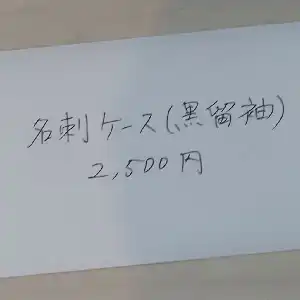 名刺ケース(黒留袖)
2,500円